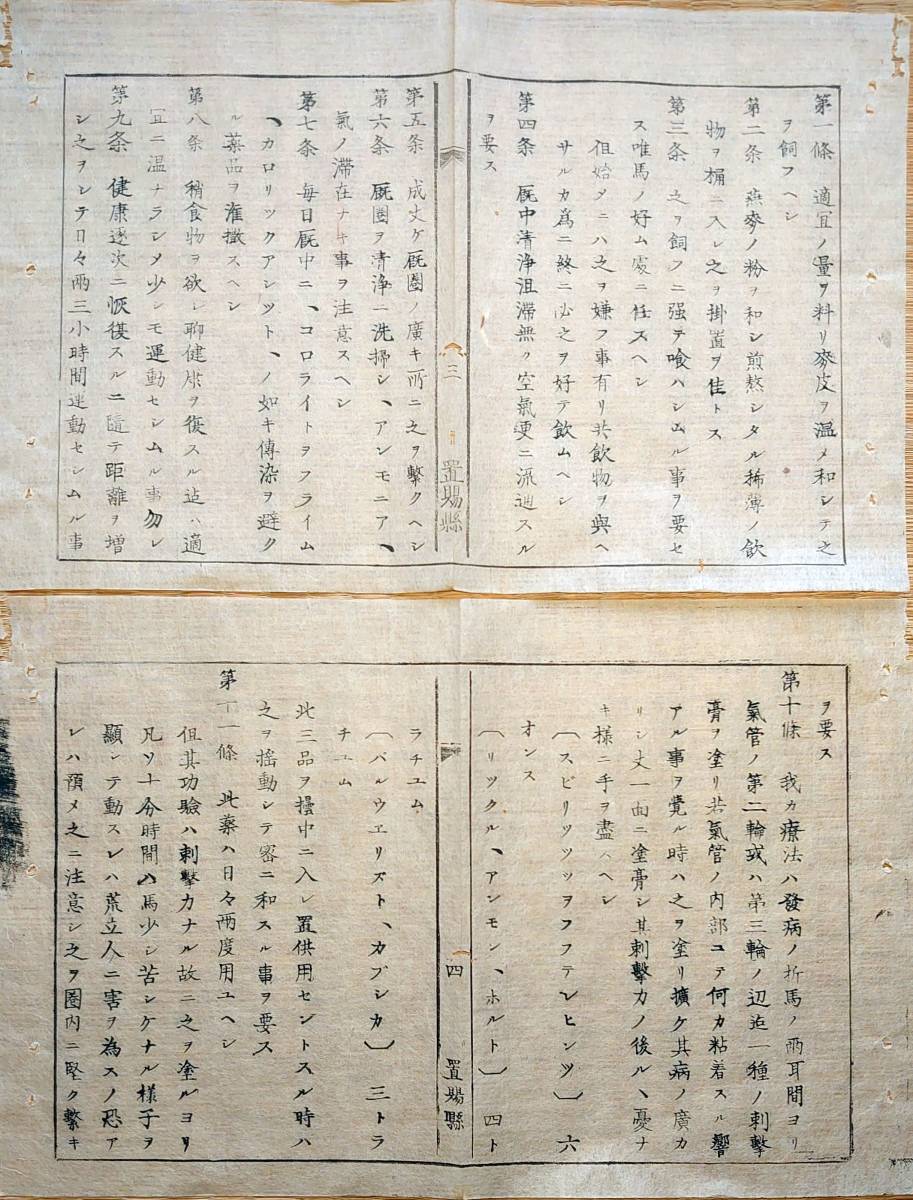 第一條 適宜ノ量ヲ料リ麥皮ヲ温メ和シテ之
ヲ飼フヘシ
第二条 燕麥ノ粉ヲ和シ煎熬シタル稀薄ノ飲
物ヲ桶ニ入レ之ヲ掛置ヲ佳トス
第三条 之ヲ飼フニ强テ喰ハシムル事ヲ要セ
ス唯馬ノ好ム處ニ任スヘシ
但始メニハ之ヲ嫌フ事有リ共飲物ヲ與ヘ
サルカ為ニ終ニ必之ヲ好テ飲ムヘシ
第四条 厩中清浄沮滞無ク空氣更ニ流通スル
ヲ要ス
三 置賜縣
第五条 成丈ケ厩圏ノ廣キ所ニ之ヲ繋クヘシ
第六条 厩圏ヲ清浄ニ洗掃シ、アンモニア、
氣ノ滞在ナキ事ヲ注意スヘシ
第七条 毎日厩中ニ、コロライトヲフライム
、カロリックアシット、ノ如キ傳染ヲ避ク
ル薬品ヲ潅撒スヘシ
第八条 稍食物ヲ欲シ聊健康ヲ復スル迠ハ適
宜ニ温ナラシメ少シモ運動セシムル事勿レ
第九条 健康逐次ニ恢復スルニ隨テ距離ヲ増
シ之ヲシテ日々兩三小時間運動セシムル事
ヲ要ス
第十條 我カ療法ハ發病ノ折馬ノ兩耳間ヨリ
氣管ノ第二輪或ハ第三輪ノ辺迠一種ノ刺擊
膏ヲ塗リ若氣管ノ内部ユテ何カ粘着スル響
アル事ヲ覚ル時ハ之ヲ塗リ擴ク其病ノ廣カ
リシ丈一面ニ塗膏シ其刺擊カノ後ル、憂ナ
キ様ニ手ヲ盡スヘシ
〔スビリッツヲフフテレヒンツ〕 六
オンス
〔リックル、アンモン、ホルト〕 四ト
四 置賜縣
ラチユム
〔パルウエリスト、カブシカ〕 三トラ
チユム
此三品ヲ壜中ニ入レ置供用セントスル時ハ
之ヲ揺動シテ密ニ和スル事ヲ要ス
第十一條 此薬ハ日々兩度用ユヘシ
但其功驗ハ刺擊カナル故ニ之ヲ塗ルヨリ
凡ソ十分時間ハ馬少シ苦シケナル様子ヲ
顯シテ動スレハ荒立人ニ害ヲ為スノ恐ア
レハ預メ之ニ注意シ之ヲ圏内ニ堅ク繋キ